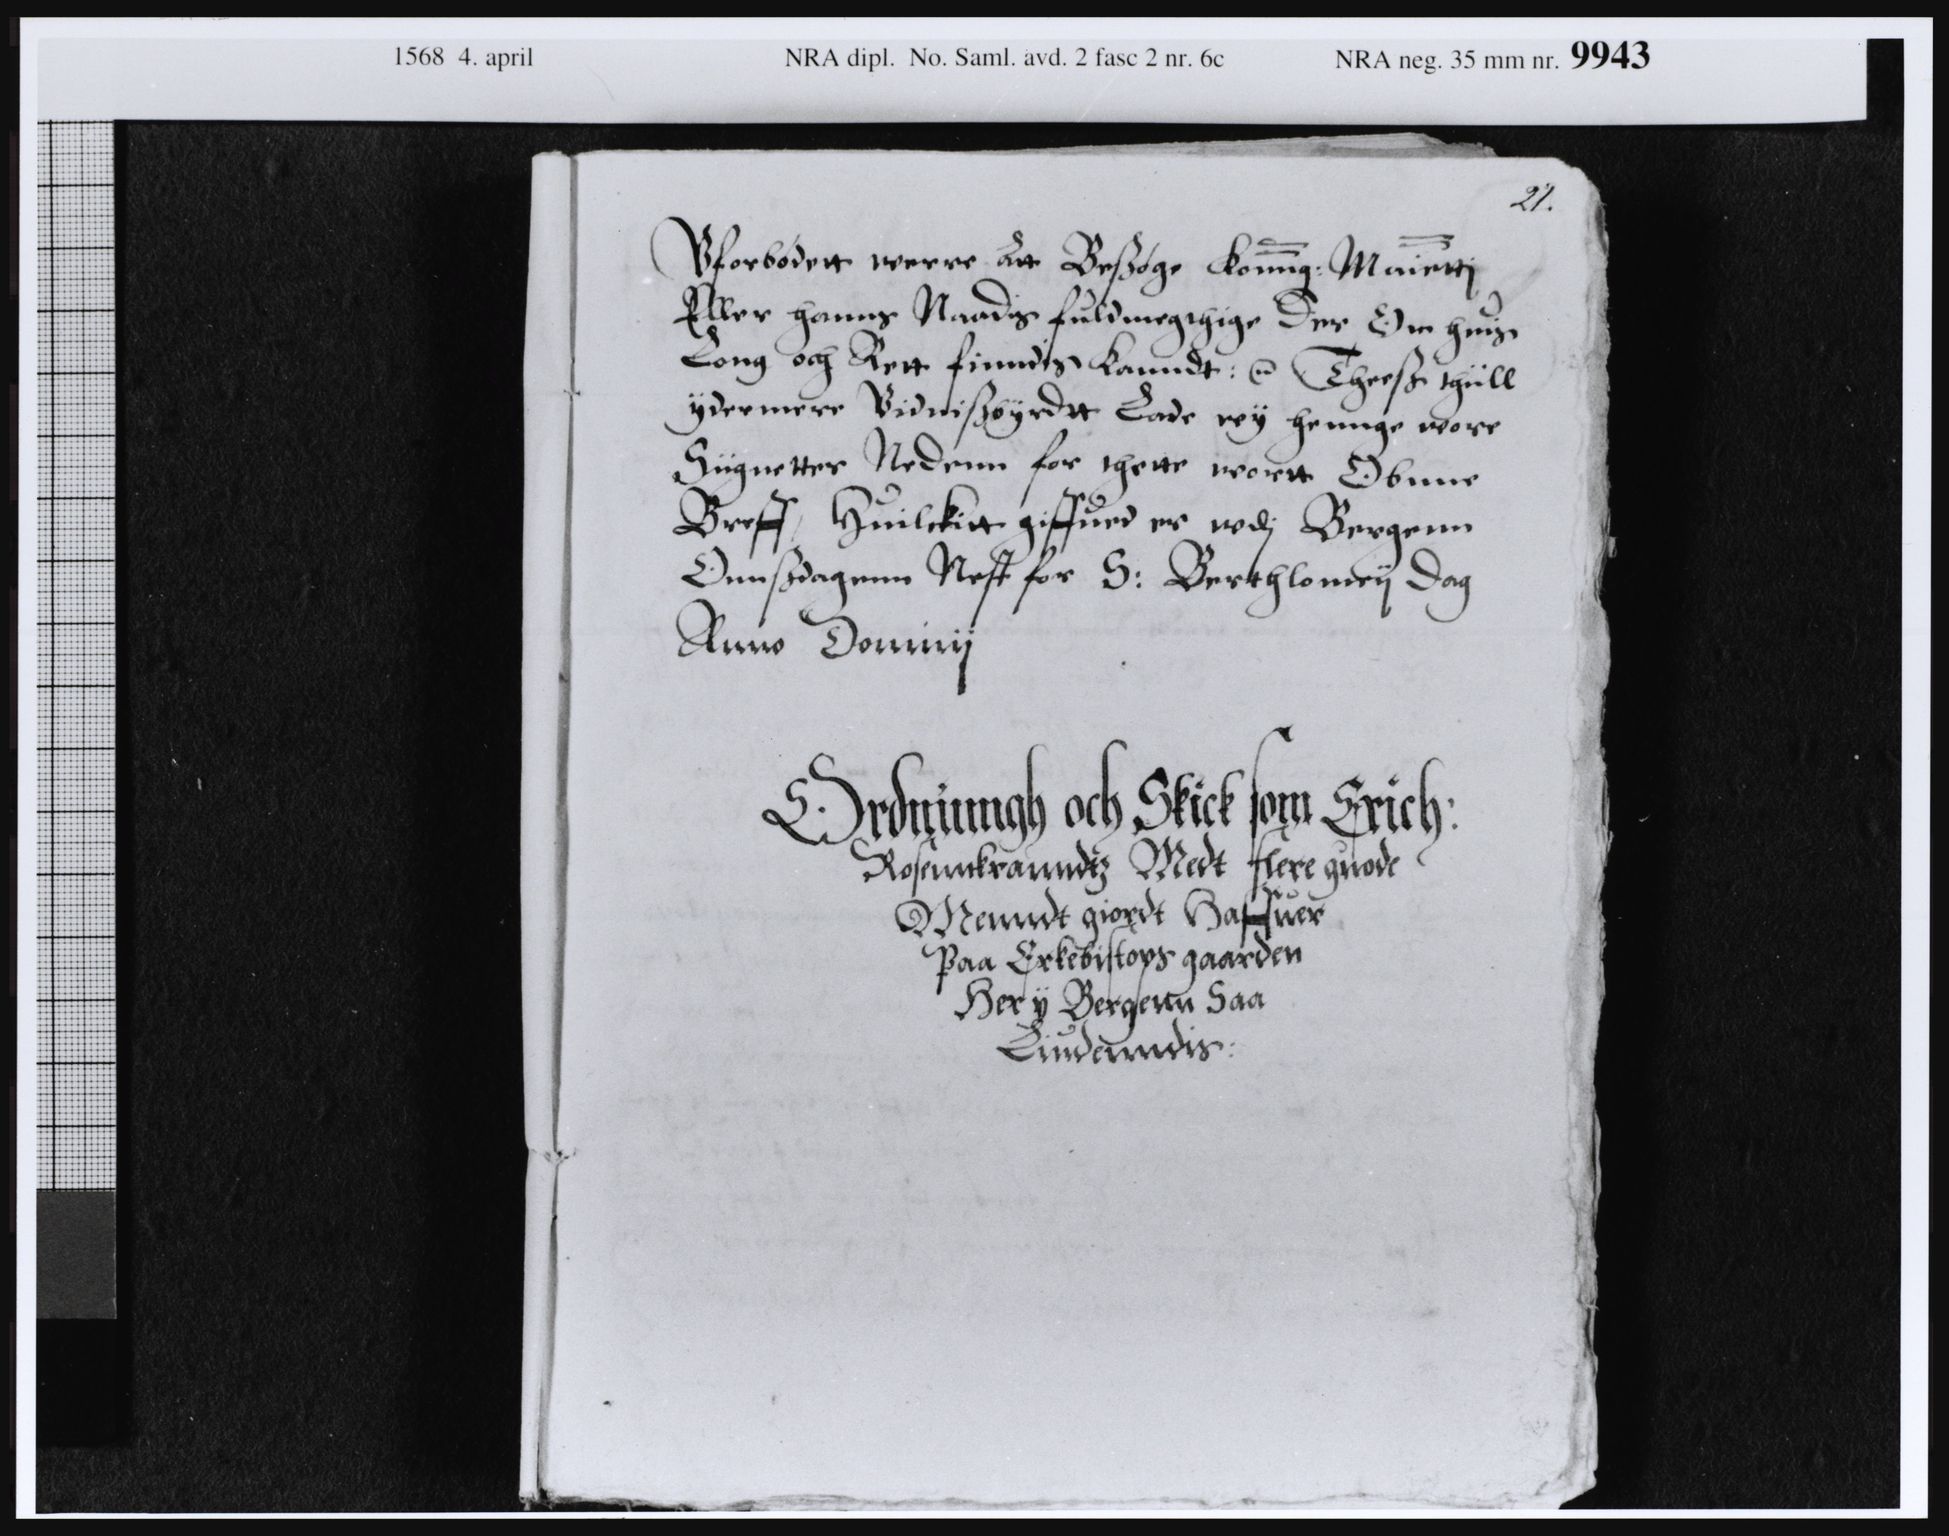 1568 4. april NRA dipl. No. Saml. avd. 2 fasc 2 nr. 6c NRA neg. 35 mm nr. 9943
21.
Vforbódett werre att Beßóge Konng: Maiettj
Eller hanns Naadis fuldmegthige der Om huis
Loug och Rett finndis kanndt: Theeß thüll
ÿdermere Vidnißbÿrdtt Lade wÿ hennge wore
Siignetter Nedenn for thette wortt Obnne
Breff, Huilckitt giffued er wdj Bergenn
Onnßdagenn Nest for S: Berthlomeÿ Dag
Anno Dominij
Ordnünngh och Skick som Erich:
Rosennkranndtz Medt flere guode
Menndt giordt Haffuer
Paa Erkebiskops gaarden
Her ÿ Bergenn Saa
Liudenndis: